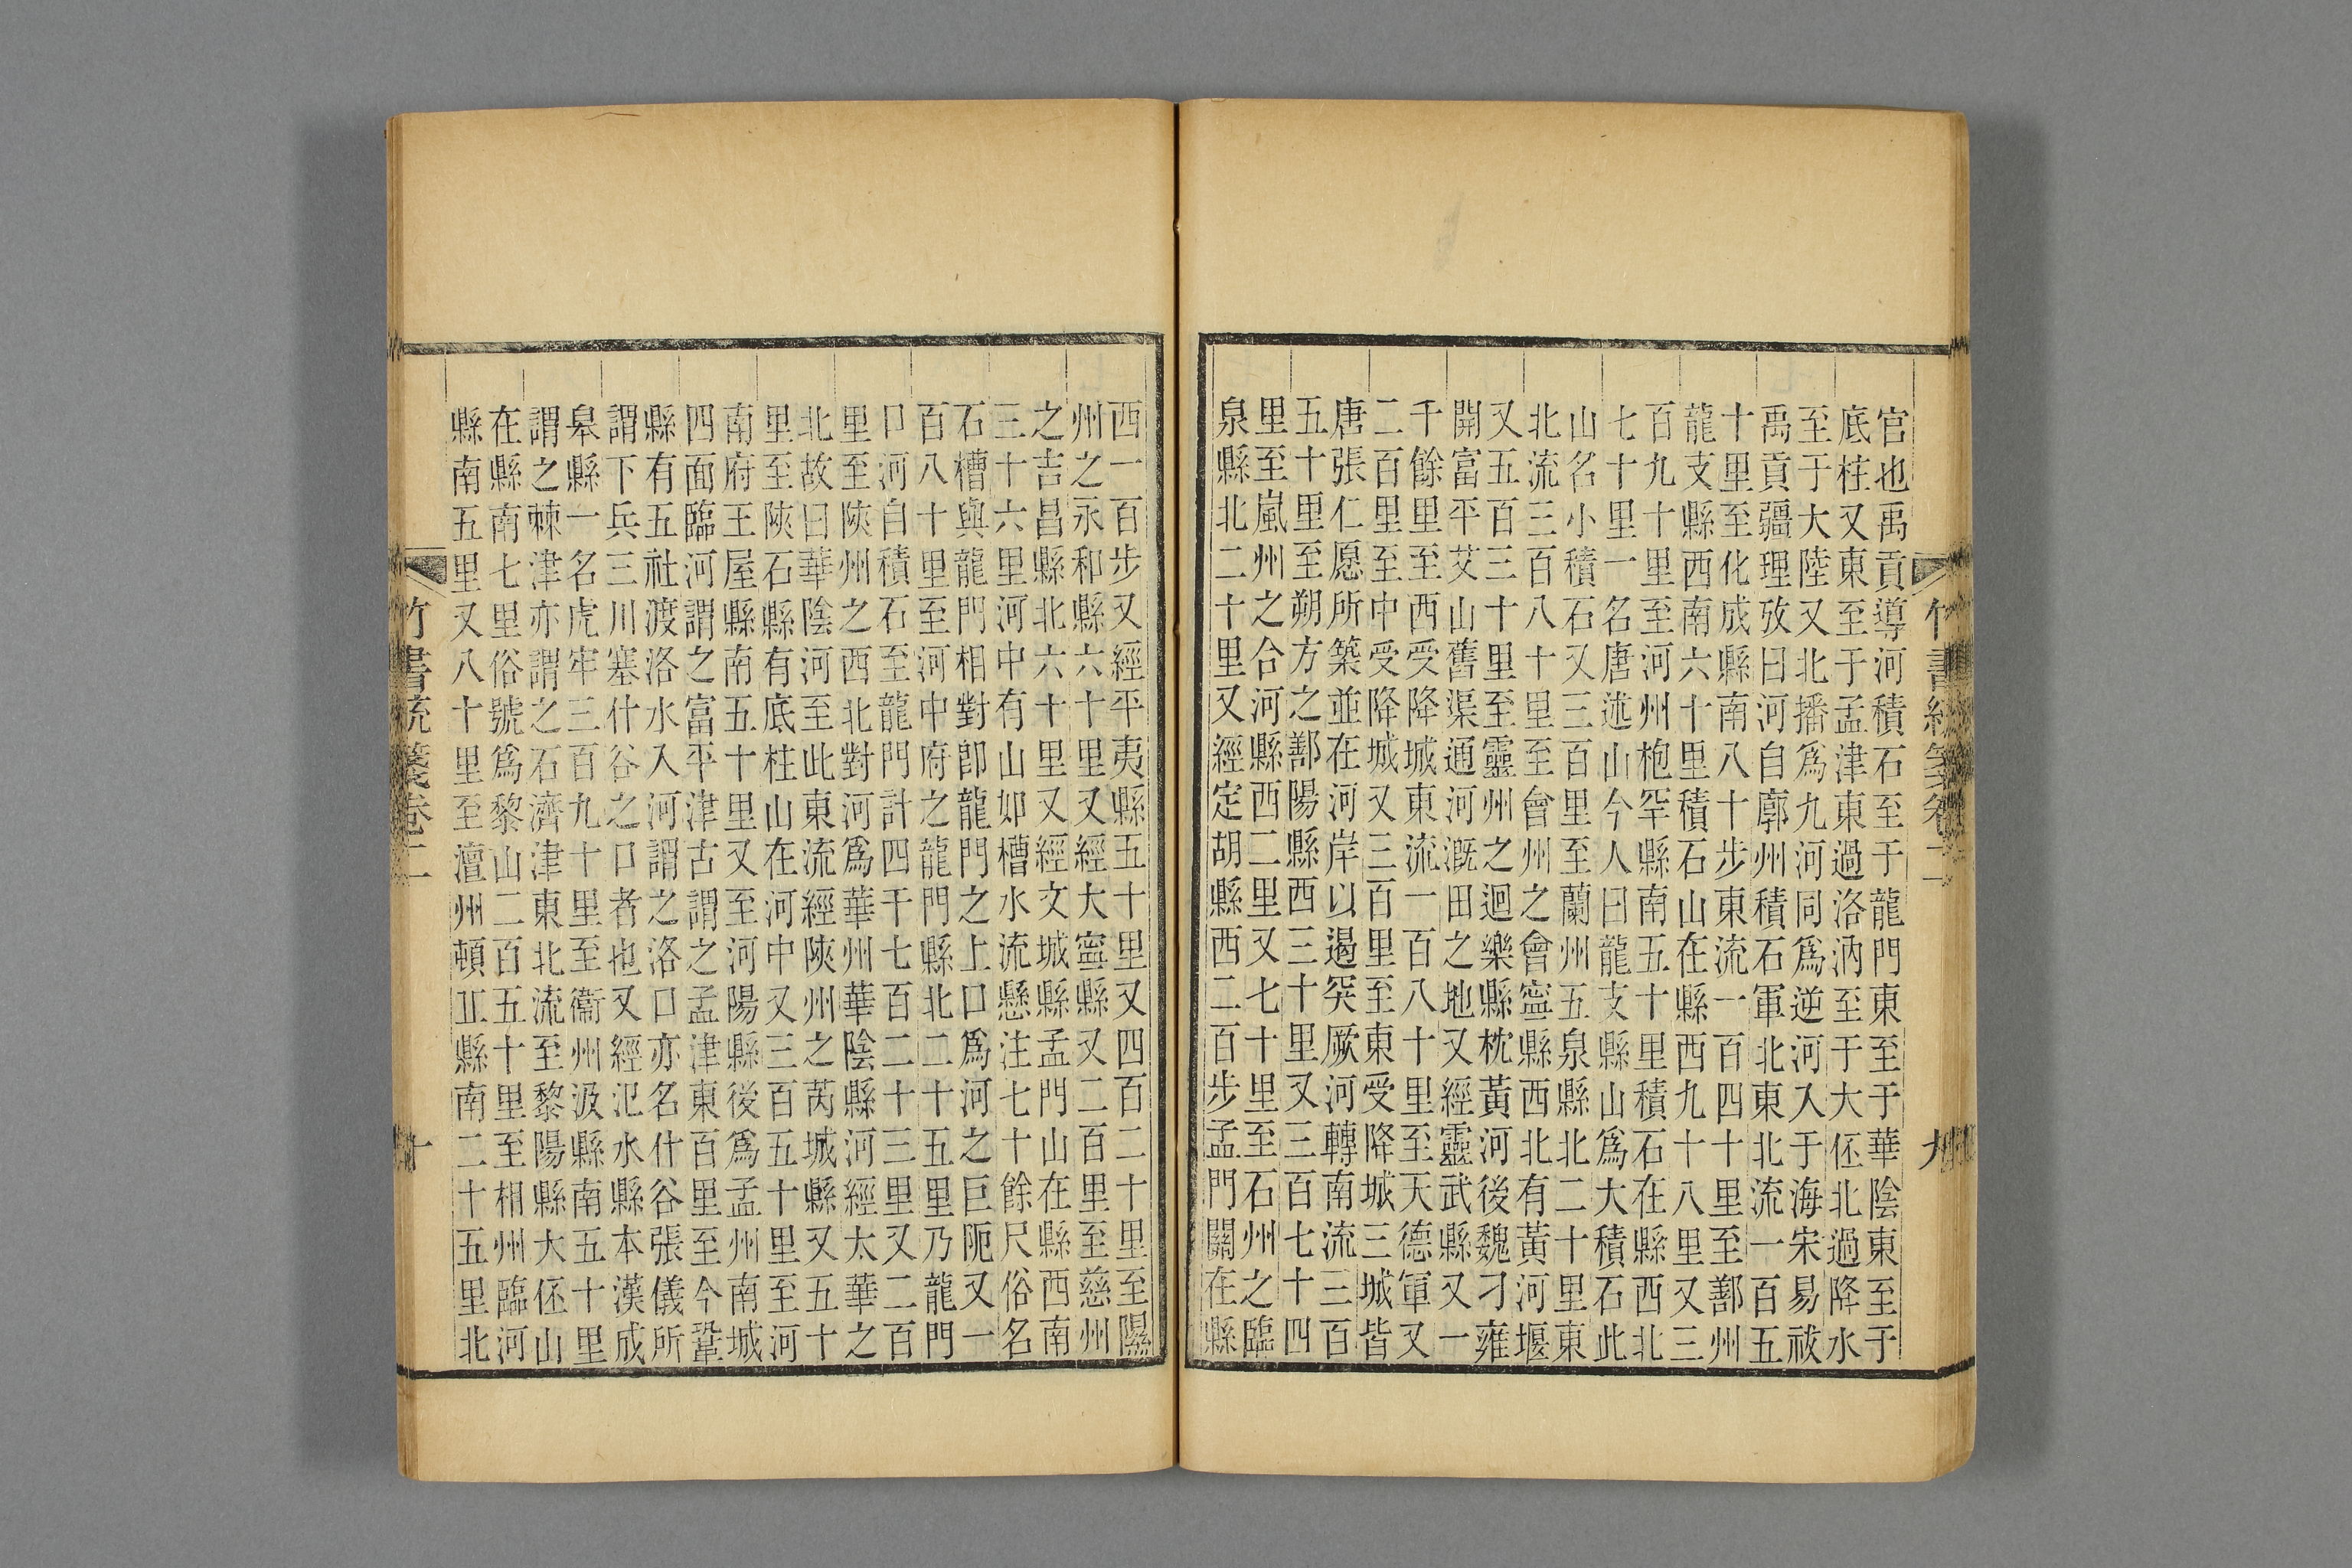 官也禹貢導河積石至于龍門東至于華陰東至于
底柱又東至于孟津東過洛汭至于大伾北過降水
至于大陸又北播爲九河同爲逆河入于海宋易祓
禹貢疆理攷曰河自廓州積石軍北東北流一百五
十里至化成縣南八十步東流一百四十里至鄯州
龍支縣西南六十里積石山在縣西九十八里又三
百九十里至河州枹罕縣南五十里積石在縣西北
七十里一名唐述山今人曰龍支縣山爲大積石此
山名小積石又三百里至蘭州五泉縣北二十里東
北流三百八十里至會州之會寧縣西北有黃河堰
又五百三十里至靈州之迴樂縣枕黃河後魏刁雍
開富平艾山舊渠通河溉田之地又經靈武縣又一
千餘里至西受降城東流一百八十里至天德軍又
二百里至中受降城又三百里至東受降城三城皆
唐張仁愿所築並在河岸以遏突厥河轉南流三百
五十里至朔方之鄯陽縣西三十里又三百七十四
里至嵐州之合河縣西二里又七十里至石州之臨
泉縣北二十里又經定胡縣西二百步孟門關在縣
竹書統箋卷二
九
西一百步又經平夷縣五十里又四百二十里至隰
州之永和縣六十里又經大寧縣又二百里至慈州
之吉昌縣北六十里又經文城縣孟門山在縣西南
三十六里河中有山如槽水流懸注七十餘尺俗名
石槽與龍門相對卽龍門之上口爲河之巨阨又一
百八十里至河中府之龍門縣北二十五里乃龍門
口河自積石至龍門計四千七百二十三里又二百
里至陝州之西北對河爲華州華陰縣河經太華之
北故曰華陰河至此東流經陝州之芮城縣又五十
里至陝石縣有底柱山在河中又三百五十里至河
南府王屋縣南五十里又至河陽縣後爲孟州南城
四面臨河謂之富平津古謂之孟津東百里至今鞏
縣有五社渡洛水入河謂之洛口亦名什谷張儀所
謂下兵三川塞什谷之口者也又經汜水縣本漢成
皋縣一名虎牢三百九十里至衞州汲縣南五十里
謂之棘津亦謂之石濟津東北流至黎陽縣大伾山
在縣南七里俗號爲黎山二百五十里至相州臨河
縣南五里又八十里至澶州頓丘縣南二十五里北
竹書統箋卷二
十